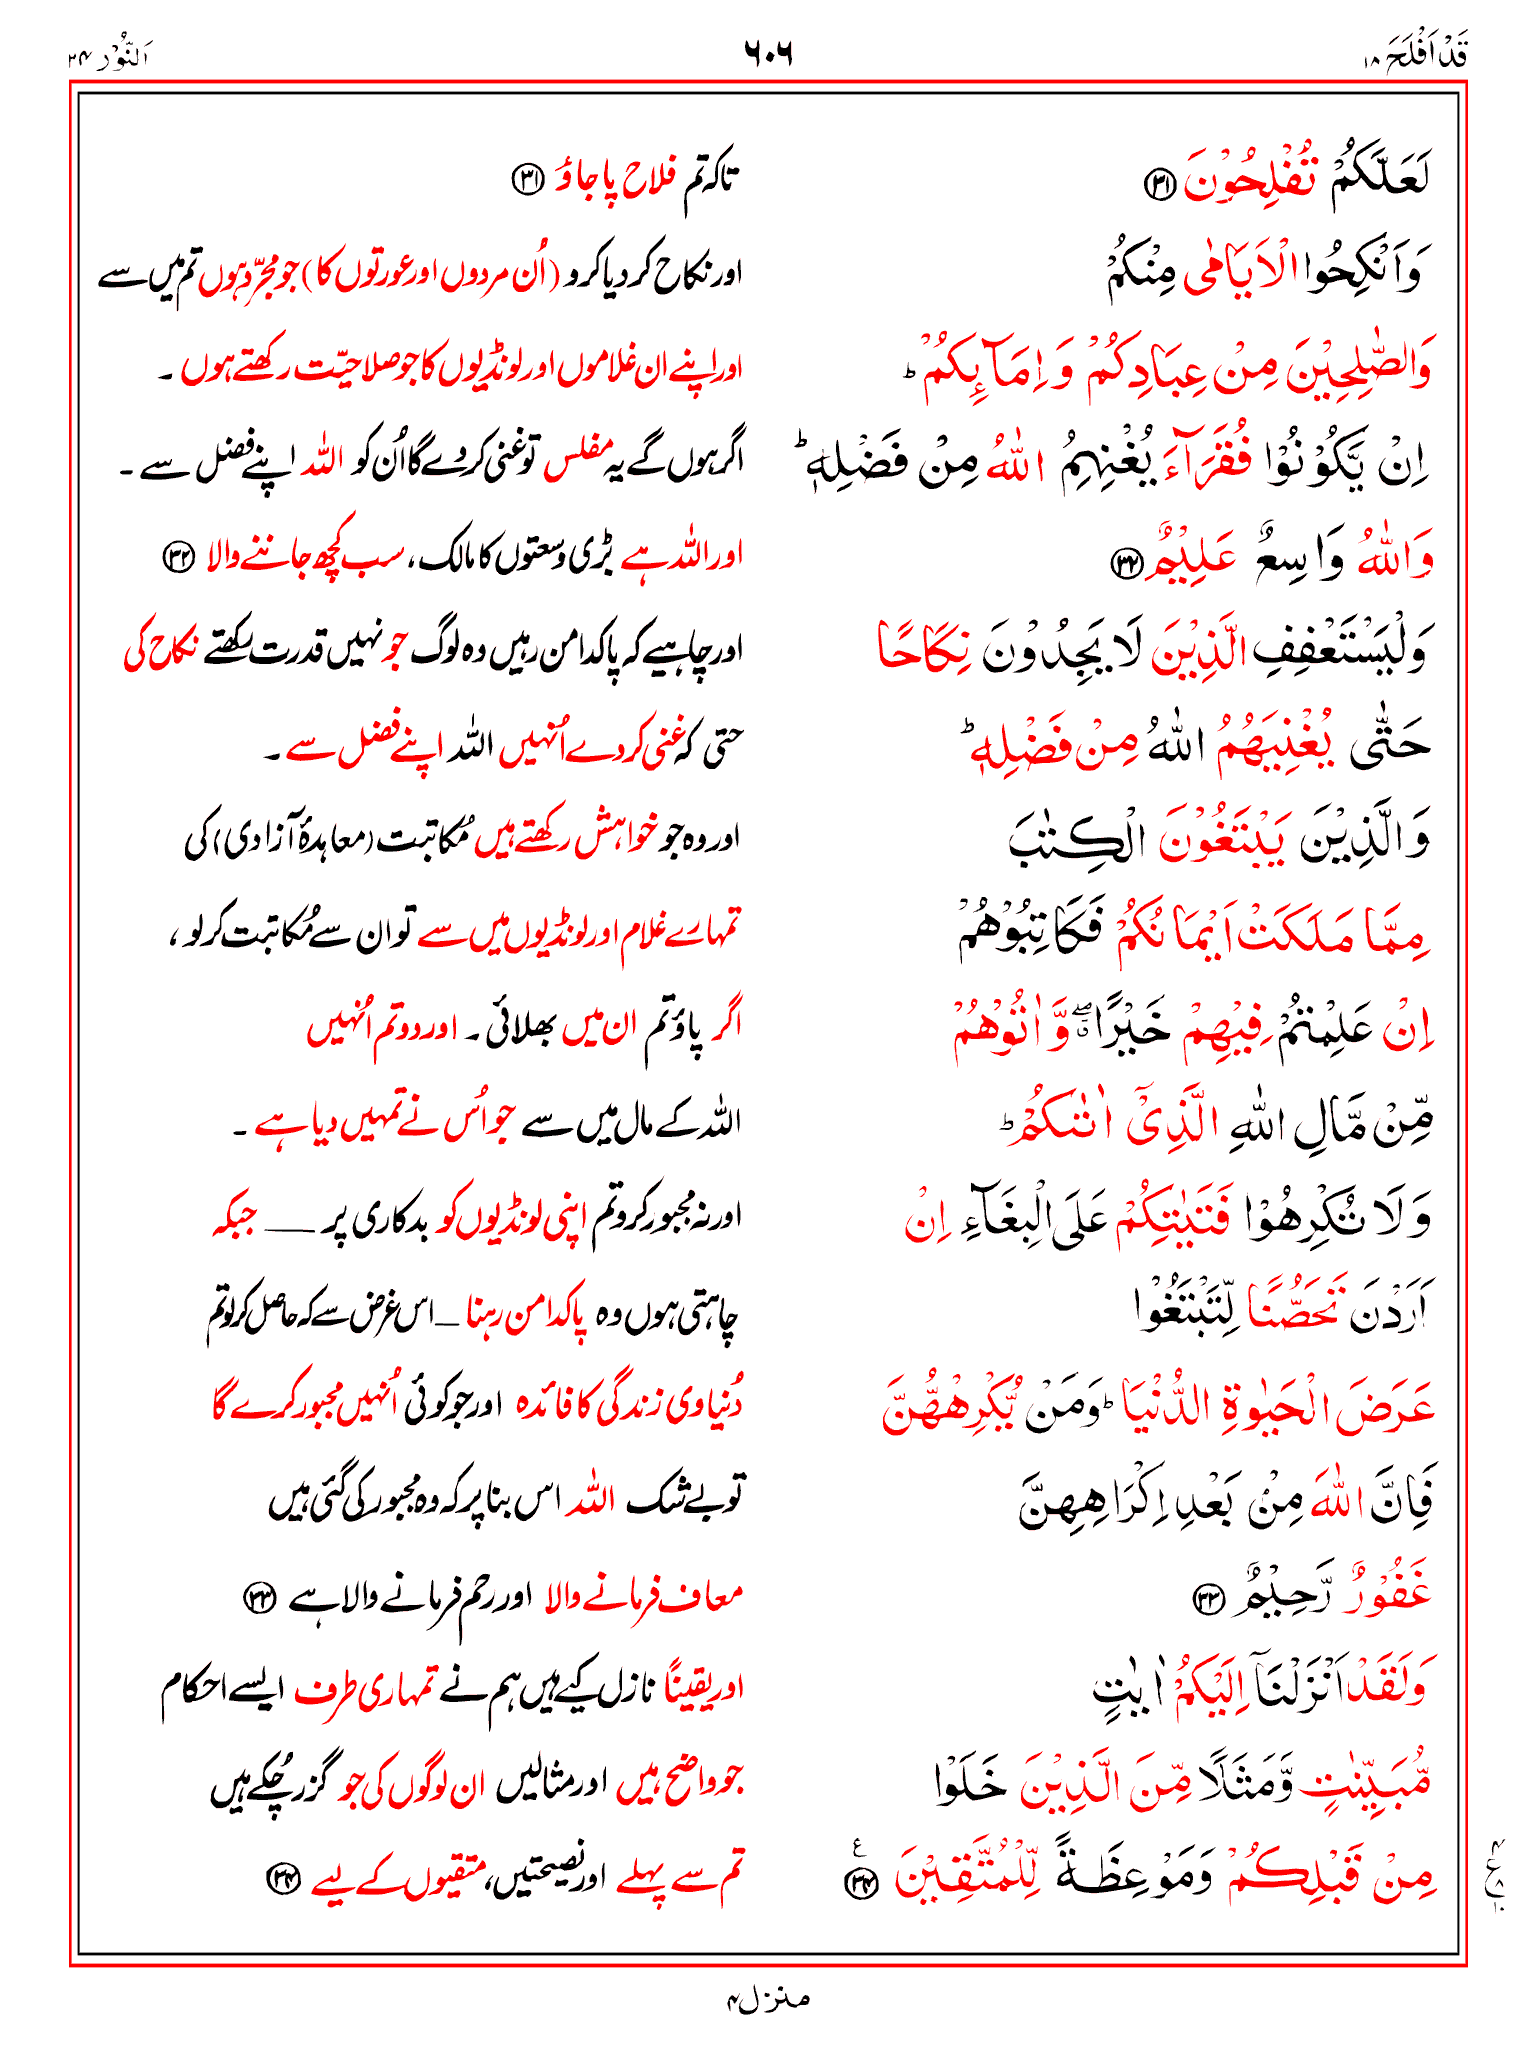 قَدْ اَفْلَحَ ۱۸
۶۰۶
اَلنُّوْر ۲۴
لَعَلَّكُمْ تُفْلِحُوْنَ ﴿۳۱﴾
تاکہ تم فلاح پا جاؤ ﴿۳۱﴾
وَاَنْكِحُوا الْاَيَامٰى مِنْكُمْ
اور نکاح کر دیا کرو (اُن مردوں اور عورتوں کا) جو مجرّد ہوں تم میں سے
وَالصّٰلِحِيْنَ مِنْ عِبَادِكُمْ وَاِمَآئِكُمْ ؕ
اور اپنے ان غلاموں اور لونڈیوں کا جو صلاحیّت رکھتے ہوں ۔
اِنْ يَّكُوْنُوْا فُقَرَآءَ يُغْنِهِمُ اللّٰهُ مِنْ فَضْلِهٖ ؕ
اگر ہوں گے یہ مفلس تو غنی کر دے گا اُن کو اللہ اپنے فضل سے ۔
وَاللّٰهُ وَاسِعٌ عَلِيْمٌ ﴿۳۲﴾
اور اللہ ہے بڑی وسعتوں کا مالک، سب کچھ جاننے والا ﴿۳۲﴾
وَلْيَسْتَعْفِفِ الَّذِيْنَ لَا يَجِدُوْنَ نِكَاحًا
اور چاہیے کہ پاکدامن رہیں وہ لوگ جو نہیں قدرت رکھتے نکاح کی
حَتّٰى يُغْنِيَهُمُ اللّٰهُ مِنْ فَضْلِهٖ ؕ
حتی کہ غنی کر دے اُنہیں اللہ اپنے فضل سے ۔
وَالَّذِيْنَ يَبْتَغُوْنَ الْكِتٰبَ
اور وہ جو خواہش رکھتے ہیں مُکاتبت (معاہدۂ آزادی) کی
مِمَّا مَلَكَتْ اَيْمَانُكُمْ فَكَاتِبُوْهُمْ
تمہارے غلام اور لونڈیوں میں سے تو ان سے مُکاتبت کر لو ،
اِنْ عَلِمْتُمْ فِيْهِمْ خَيْرًا ۖۗ وَّاٰتُوْهُمْ
اگر پاؤ تم ان میں بھلائی ۔ اور دو تم اُنہیں
مِّنْ مَّالِ اللّٰهِ الَّذِيْۤ اٰتٰىكُمْ ؕ
اللہ کے مال میں سے جو اُس نے تمہیں دیا ہے ۔
وَلَا تُكْرِهُوْا فَتَيٰتِكُمْ عَلَى الْبِغَآءِ اِنْ
اور نہ مجبور کرو تم اپنی لونڈیوں کو بدکاری پر — جبکہ
اَرَدْنَ تَحَصُّنًا لِّتَبْتَغُوْا
چاہتی ہوں وہ پاکدامن رہنا — اس غرض سے کہ حاصل کر لو تم
عَرَضَ الْحَيٰوةِ الدُّنْيَا ؕ وَمَنْ يُّكْرِهْهُّنَّ
دُنیاوی زندگی کا فائدہ اور جو کوئی اُنہیں مجبور کرے گا
فَاِنَّ اللّٰهَ مِنْۢ بَعْدِ اِكْرَاهِهِنَّ
تو بے شک اللہ اس بنا پر کہ وہ مجبور کی گئی ہیں
غَفُوْرٌ رَّحِيْمٌ ﴿۳۳﴾
معاف فرمانے والا اور رحم فرمانے والا ہے ﴿۳۳﴾
وَلَقَدْ اَنْزَلْنَاۤ اِلَيْكُمْ اٰيٰتٍ
اور یقینًا نازل کیے ہیں ہم نے تمہاری طرف ایسے احکام
مُّبَيِّنٰتٍ وَّمَثَلًا مِّنَ الَّذِيْنَ خَلَوْا
جو واضح ہیں اور مثالیں ان لوگوں کی جو گزر چُکے ہیں
مِنْ قَبْلِكُمْ وَمَوْعِظَةً لِّلْمُتَّقِيْنَ ﴿۳۴﴾ ع
تم سے پہلے اور نصیحتیں، متقیوں کے لیے ﴿۳۴﴾
۴
ع ۸
۱۰
منزل ۴